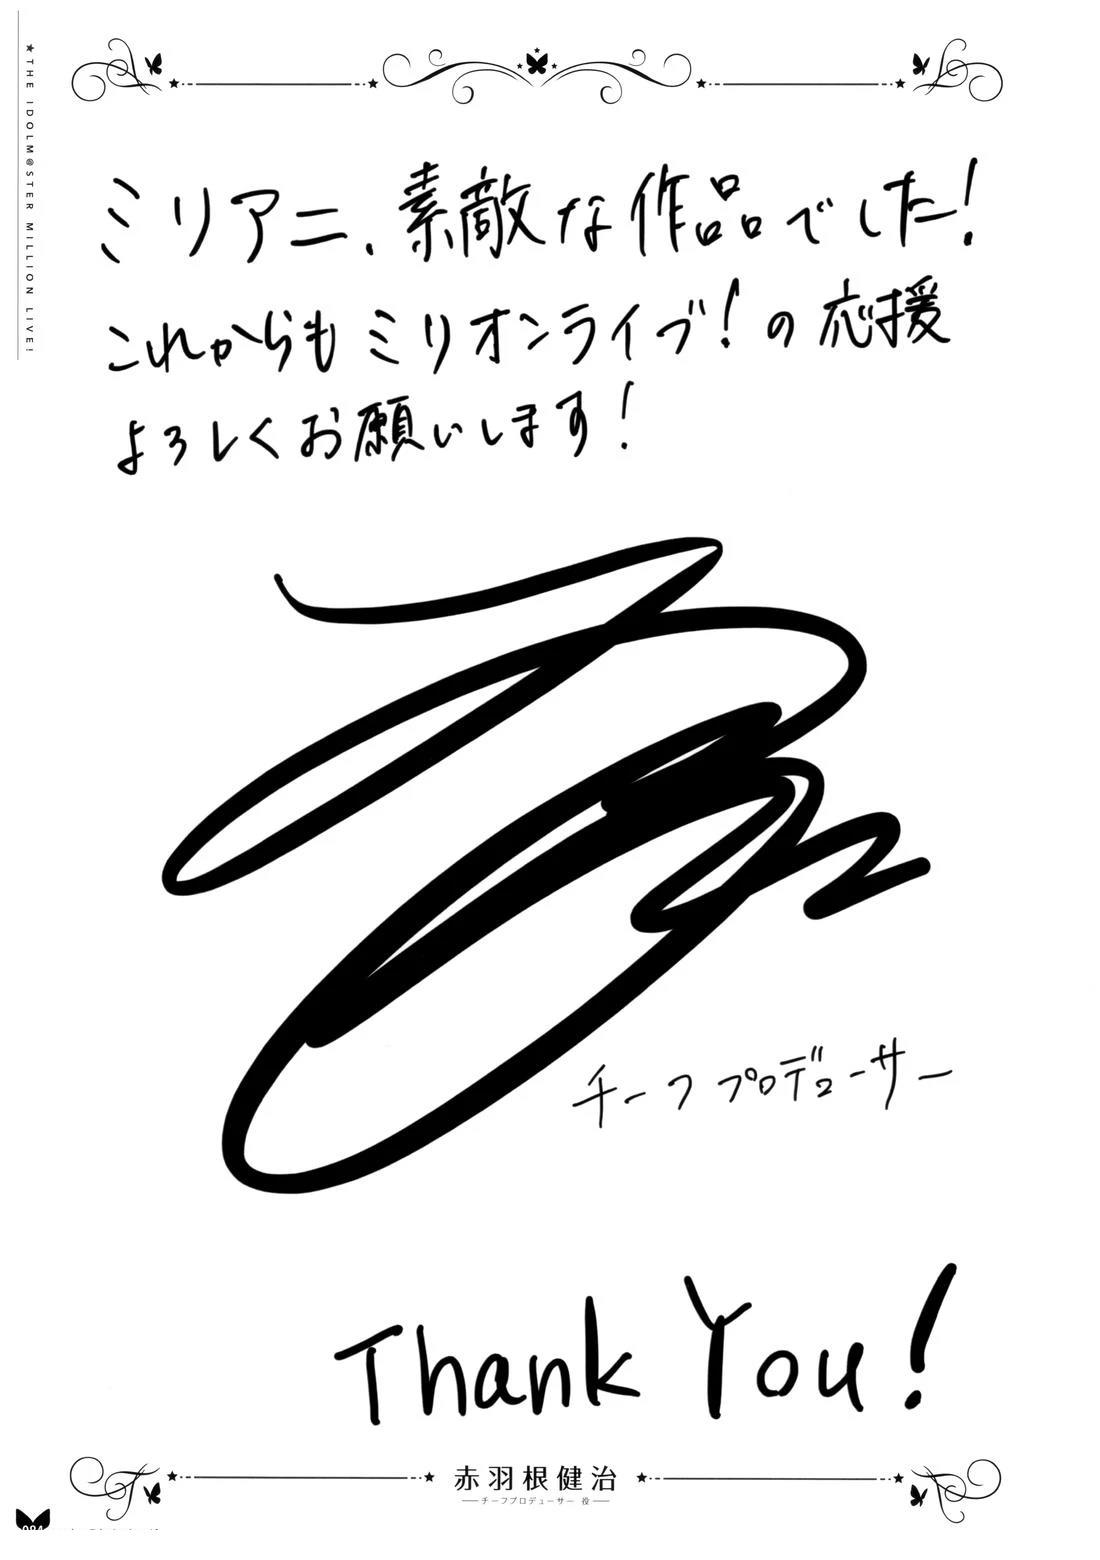 ★THE IDOLM@STER MILLION LIVE!
ミリアニ、素敵な作品でした!
これからもミリオンライブ!の応援
よろしくお願いします!
チーフプロデューサー
Thank You!
赤羽根健治
チーフプロデューサー 役